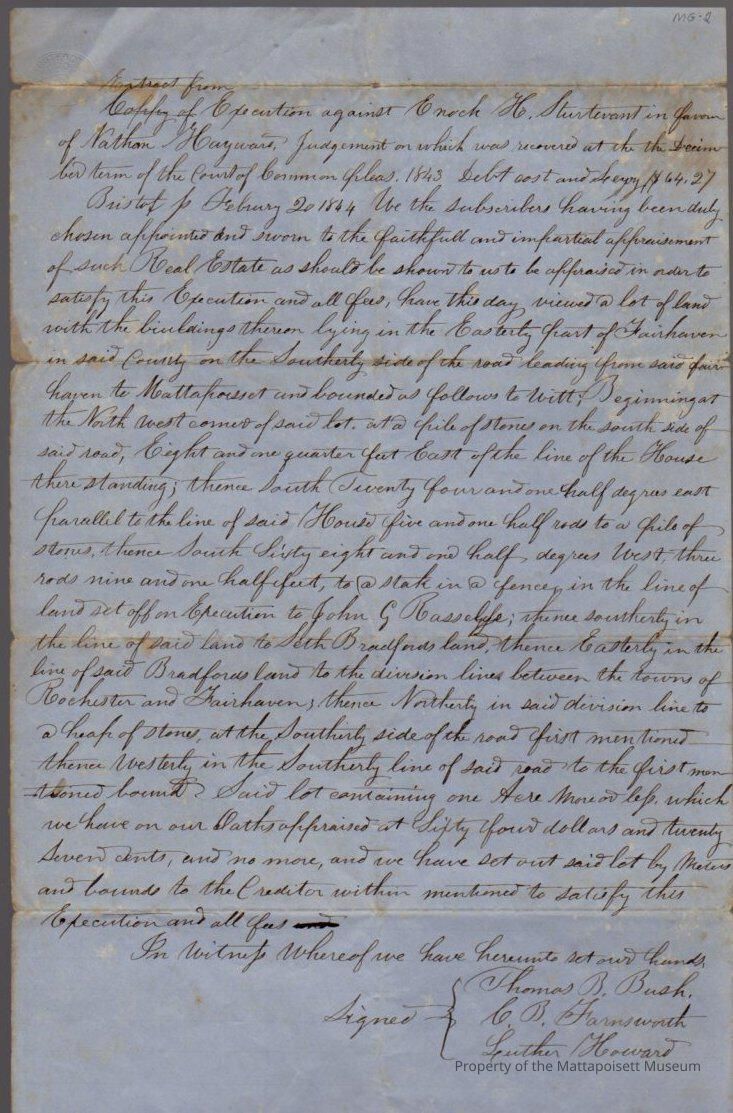 MG-2
Extract from
Coppy of Execution against Enoch H. Sturtevant in favour
of Nathan Hayward, Judgement on which was recovered at the the Decem
ber term of the Court of Common pleas. 1843 Debt cost and Levy $64.27
Bristol ss Febury 20 1844 We the subscribers having been duly
chosen appointed and sworn to the faithfull and impartial appraisement
of such Real Estate as should be shown to us to be appraised in order to
satisfy this Execution and all fees, have this day viewed a lot of land
with the buildings thereon lying in the Easterly part of Fairhaven
in said County on the Southerly side of the road leading from said fair
haven to Mattapoisset and bounded as follows to Witt; Beginning at
the North west corner of said lot. at a pile of stones on the south side of
said road, Eight and one quarter feet East of the line of the House
there standing; thence South Twenty four and one half degrees east
parallel to the line of said House five and one half rods to a pile of
stones, thence South Sixty eight and one half degrees West, three
rods nine and one half feet, to a stak in a fence, in the line of
land set off on Execution to John G ; thence southerly in
the line of said land to Seth Bradfords land, thence Easterly in the
line of said Bradfords land to the division lines between the towns of
Rochester and Fairhaven; thence Northerly in said division line to
a heap of stones, at the Southerly side of the road first mentioned
thence Westerly in the Southerly line of said road to the first men
tioned bound. Said lot containing one Acre More or less. which
we have on our Oaths appraised at Sixty four dollars and twenty
Seven Cents, and no more, and we have set out said lot by Meters
and bounds to the Creditor within mentioned to satisfy this
Execution and all fees
In Witness Whereof we have hereunto set our hands,
Thomas B. Bush.
Signed C. B. Farnsworth
Luther Howard
Property of the Mattapoisett Museum